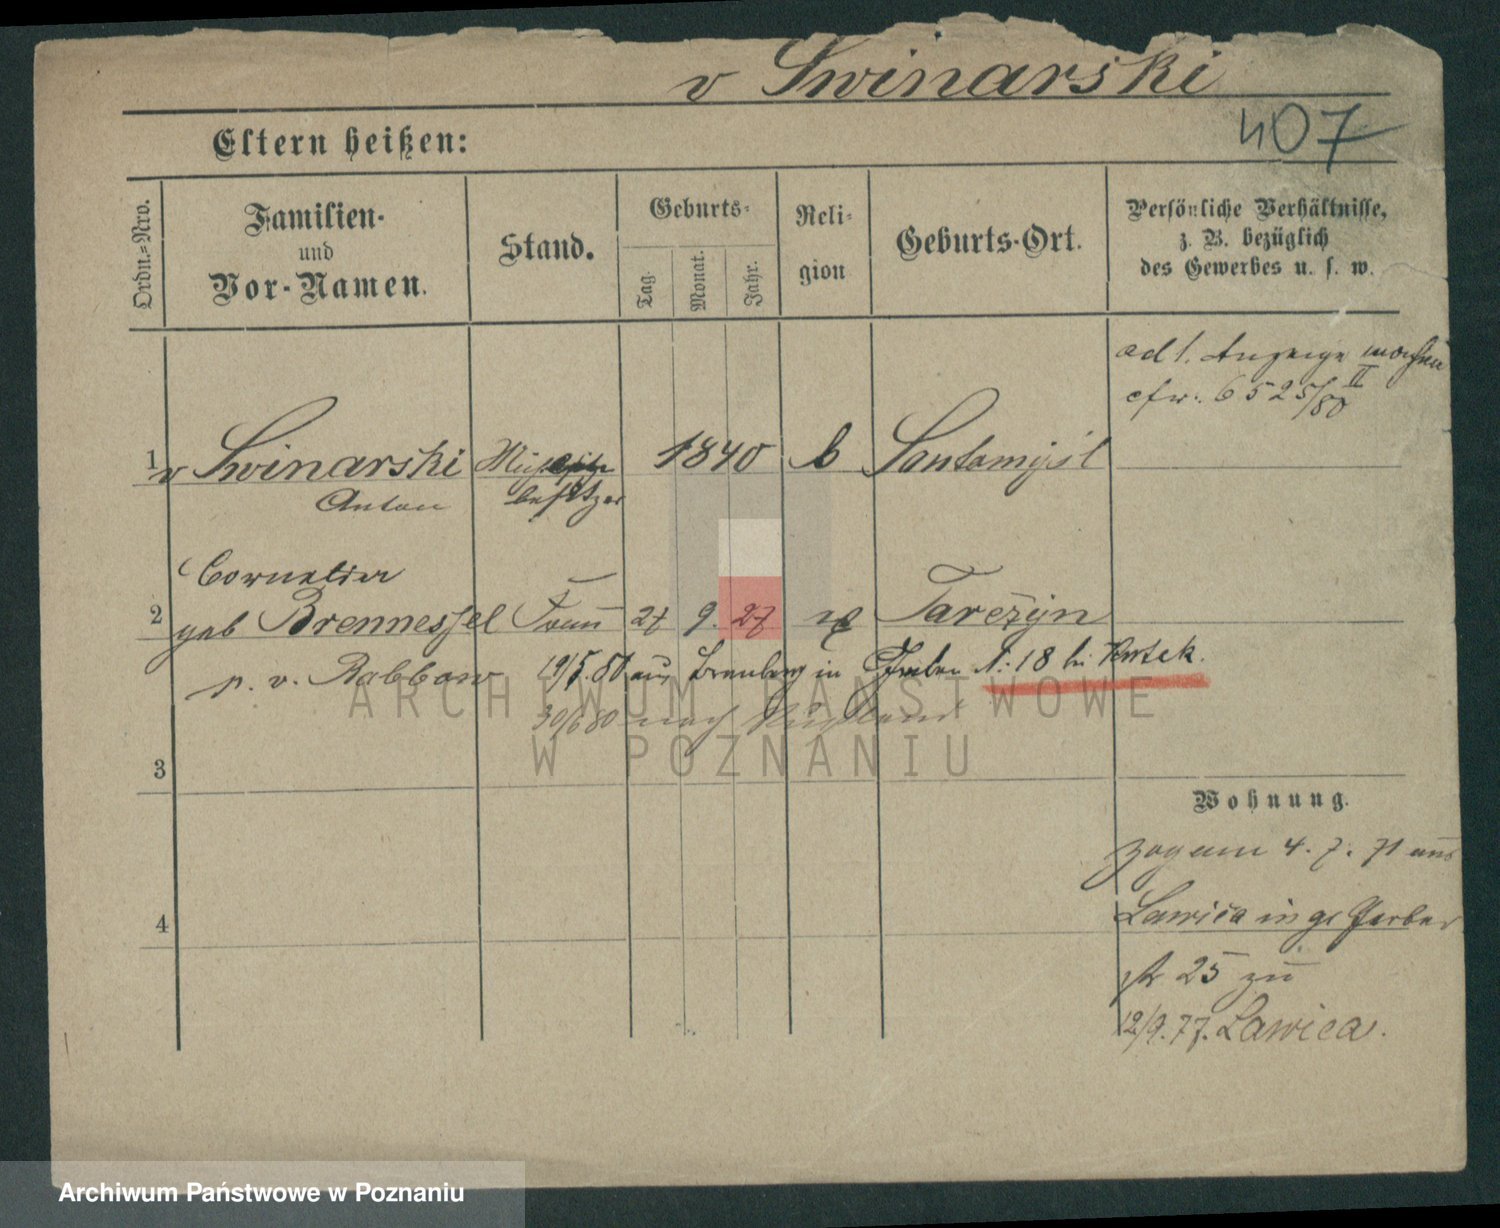 v Swinarski
407
Eltern heißen:
Ordn.-Nro.
Familien-
und
Vor-Namen.
Stand.
Geburts-
Tag.
Monat.
Jahr.
Reli-
gion
Geburts-Ort.
Persönliche Verhältnisse,
z. B. bezüglich
des Gewerbes u. s. w.
ad 1. Anzeige machen
cfr. 6525/80 II
1 v Swinarski
Anton
besitzer
1840
Santomysl
Cornelia
2 geb Brennessel Frau 27 9. 27 Tarezyn
p. v. Rabbow 19/5.80 aus Bromberg in N: 18 bei
30/6 80 nach
3
Wohnung.
zog am 4. 7. 71 aus
Lawica in gr Gerber
4
str 25 zu
12/9.77. Lawica.
ARCHIWUM PAŃSTWOWE
W POZNANIU
Archiwum Państwowe w Poznaniu